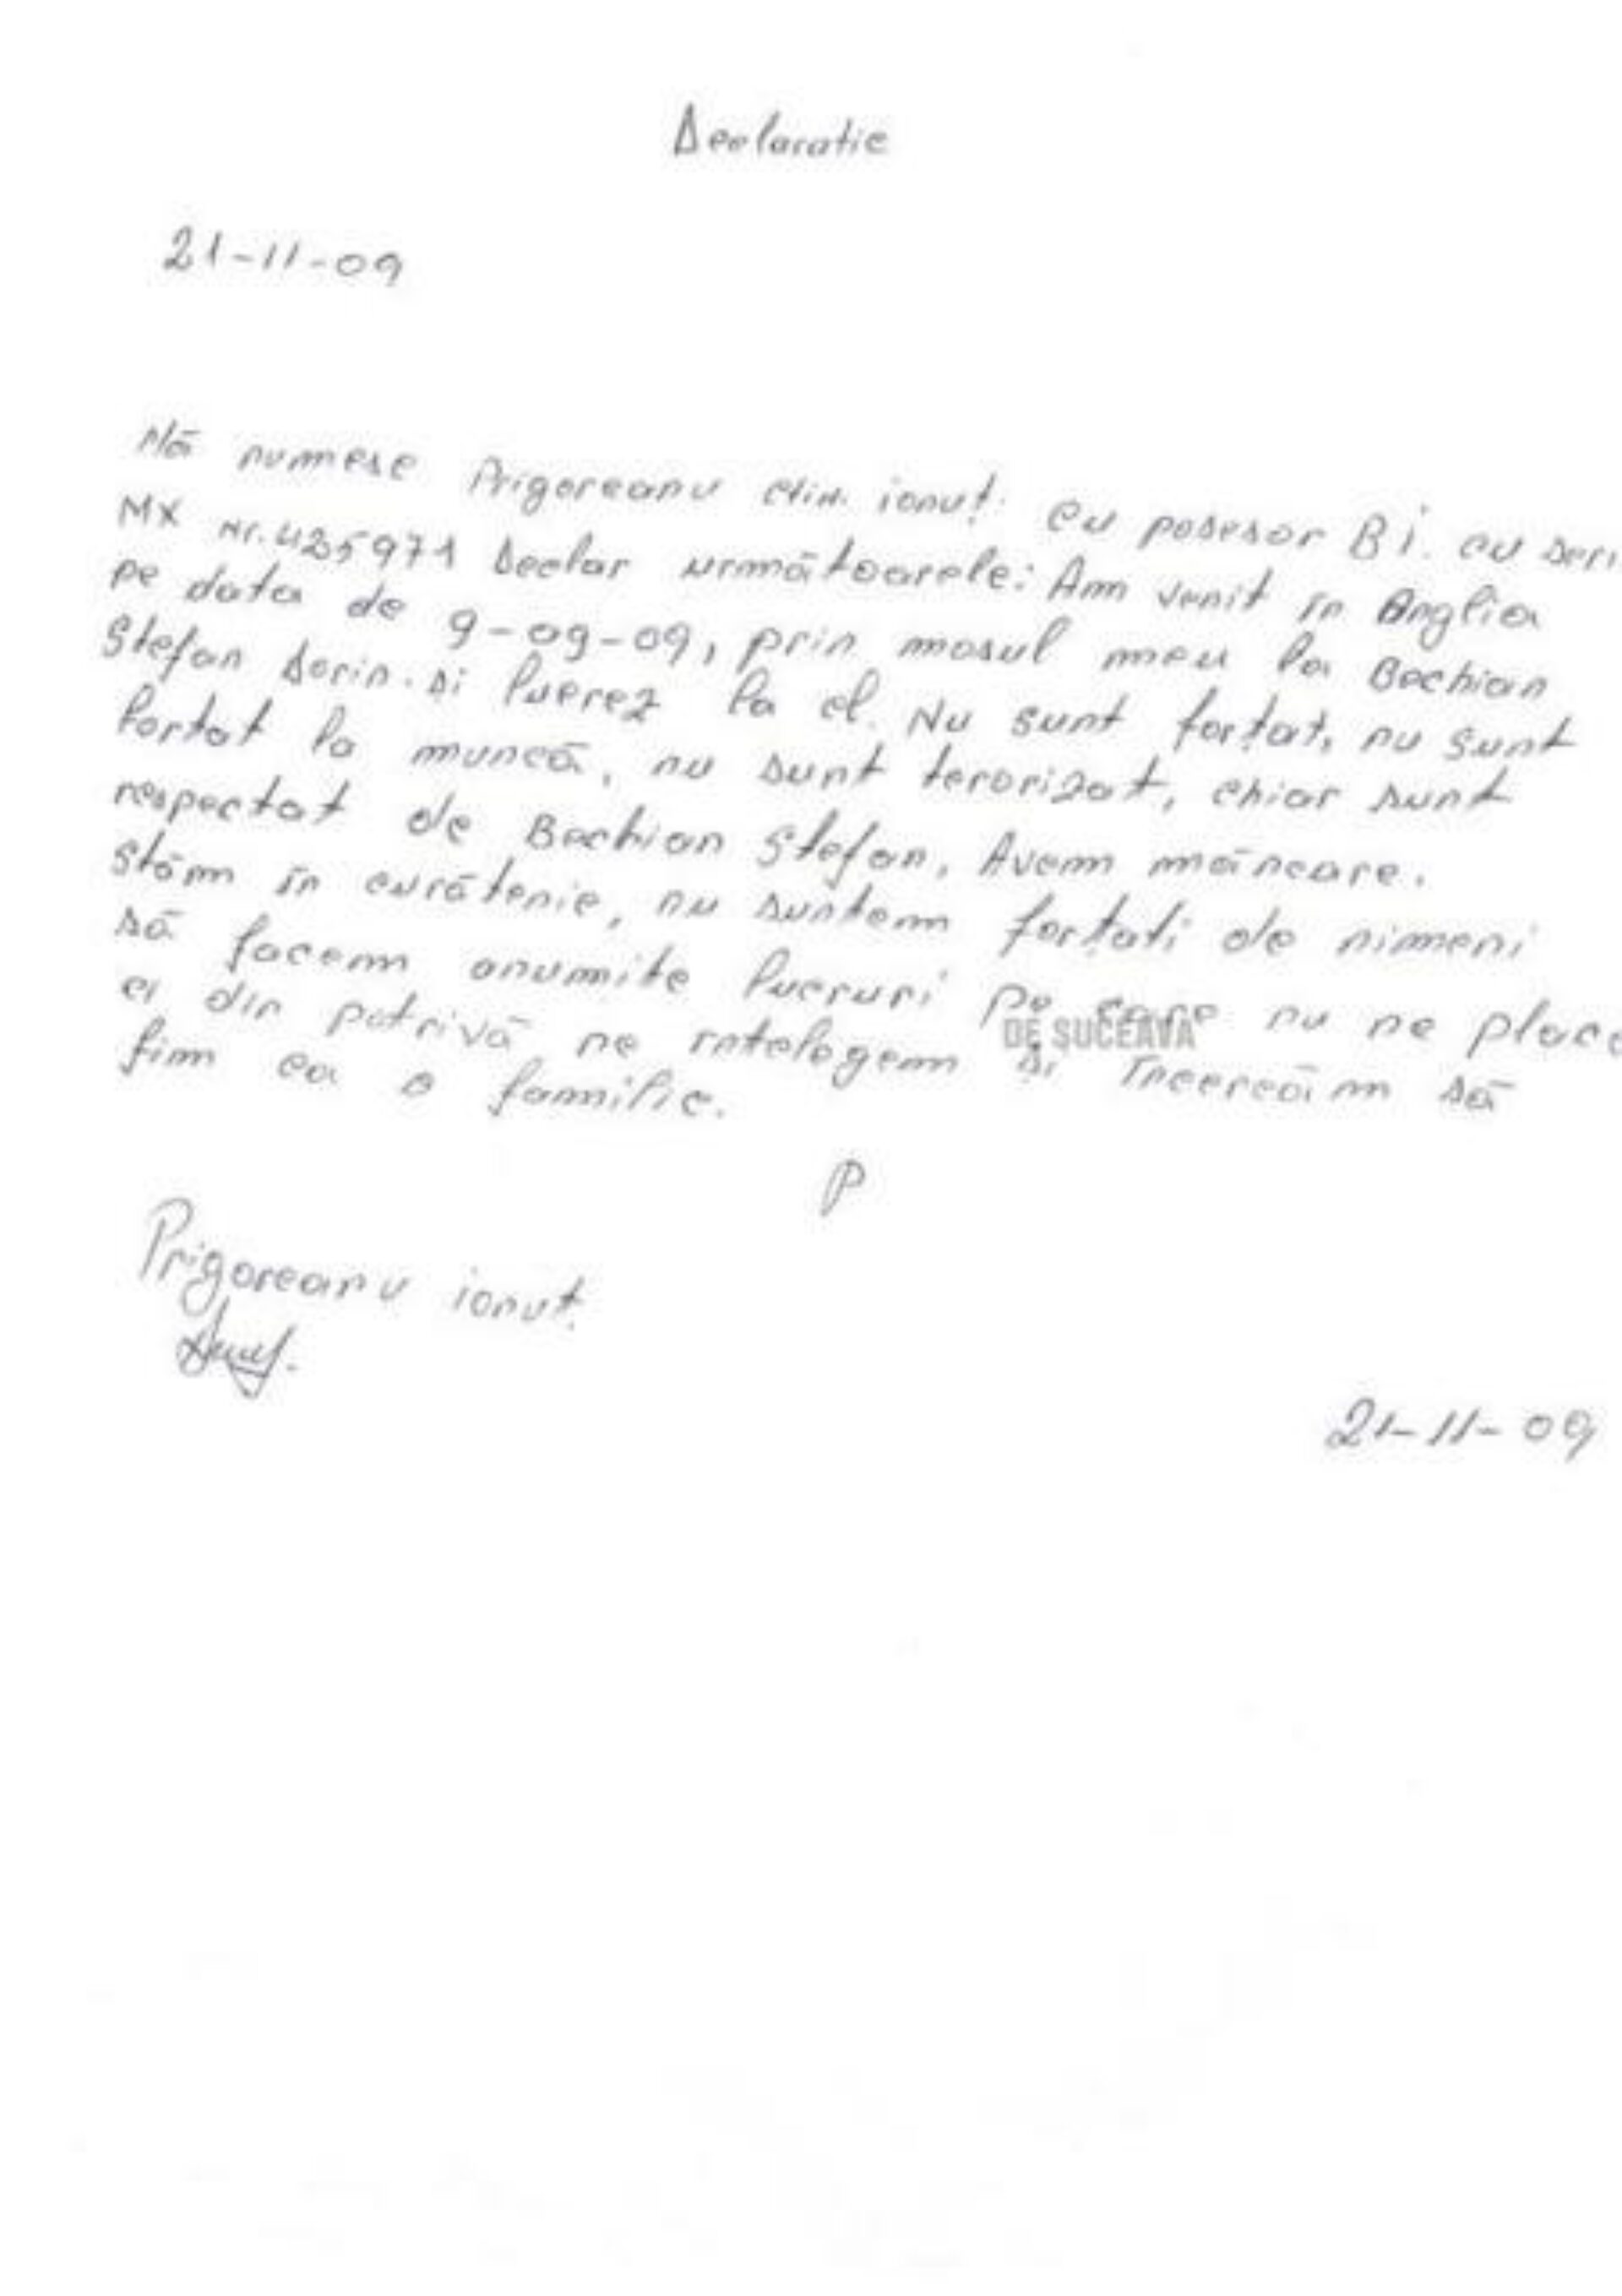 Declaratie
21-11-09
Mă numesc Prigoreanu ionuț. cu posesor B i. cu seri
MX nr. 425971 Declar următoarele: Am venit în Anglia
pe data de 9-09-09, prin mosul meu la Bechian
Stefan Sorin. si lucrez la el. Nu sunt forțat, nu sunt
fortat la muncă, nu sunt terorizat, chiar sunt
respectat de Bechian Stefan, Avem máncare.
Stăm în curătenie, nu suntem forțati de nimeni
să facem anumite lucruri pe care nu ne place
DE SUCEAVA
ci din potrivă ne intelegem si încercăm să
fim ca o familie.
P
Prigoreanu ionut.
21-11-09